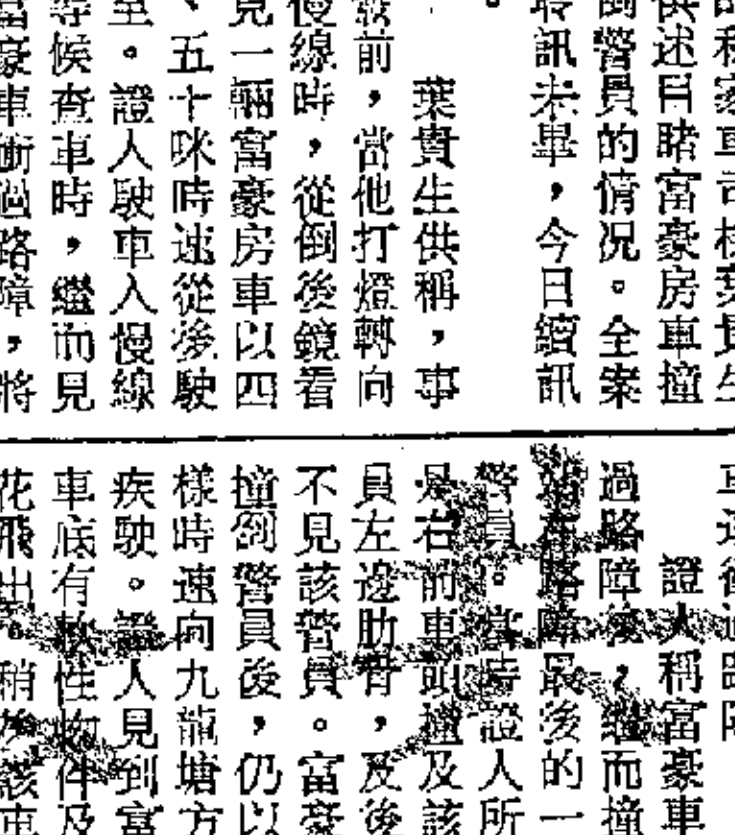 供述目睹富豪房車撞
倒警員的情況。全案
聆訊未畢，今日續訊
。
葉貴生供稱，事
發前，當他打燈轉向
慢線時，從倒後鏡看
見一輛富豪房車以四
、五十咪時速從後駛
至。證人駛車入慢線
等候查車時，繼而見
富豪車衝過路障，將
證人稱富豪車
過路障後，繼而撞
站在路障最後的一
警員。當時證人所
是右前車頭撞及該
員左邊肋骨，及後
不見該警員。富豪
撞倒警員後，仍以
樣時速向九龍塘方
疾駛。證人見到富
車底有軟性物件及
花飛出。稍後該車